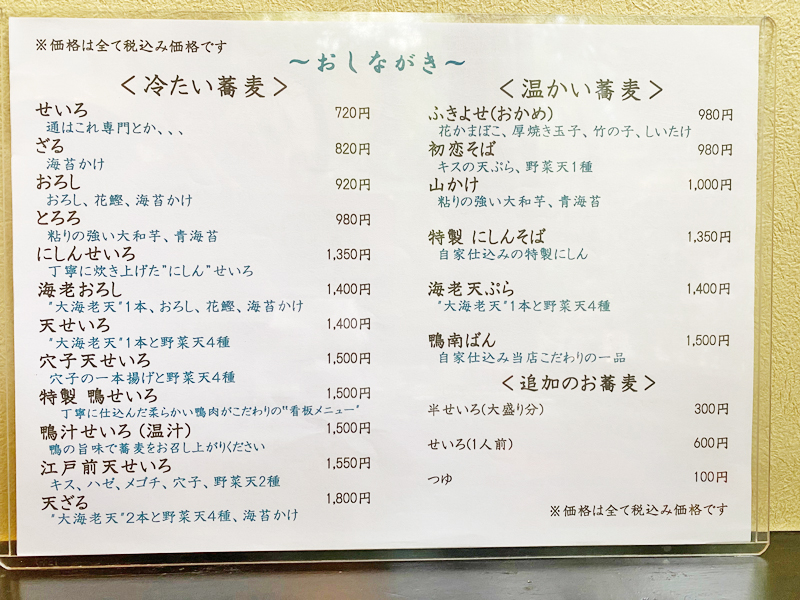 ※価格は全て税込み価格です
～おしながき～
＜冷たい蕎麦＞
せいろ 720円
通はこれ専門とか、、、
ざる 820円
海苔かけ
おろし 920円
おろし、花鰹、海苔かけ
とろろ 980円
粘りの強い大和芋、青海苔
にしんせいろ 1,350円
丁寧に炊き上げた"にしん"せいろ
海老おろし 1,400円
"大海老天"1本、おろし、花鰹、海苔かけ
天せいろ 1,400円
"大海老天"1本と野菜天4種
穴子天せいろ 1,500円
穴子の一本揚げと野菜天4種
特製 鴨せいろ 1,500円
丁寧に仕込んだ柔らかい鴨肉がこだわりの"看板メニュー"
鴨汁せいろ(温汁) 1,500円
鴨の旨味で蕎麦をお召し上がりください
江戸前天せいろ 1,550円
キス、ハゼ、メゴチ、穴子、野菜天2種
天ざる 1,800円
"大海老天"2本と野菜天4種、海苔かけ
＜温かい蕎麦＞
ふきよせ(おかめ) 980円
花かまぼこ、厚焼き玉子、竹の子、しいたけ
初恋そば 980円
キスの天ぷら、野菜天1種
山かけ 1,000円
粘りの強い大和芋、青海苔
特製 にしんそば 1,350円
自家仕込みの特製にしん
海老天ぷら 1,400円
"大海老天"1本と野菜天4種
鴨南ばん 1,500円
自家仕込み当店こだわりの一品
＜追加のお蕎麦＞
半せいろ(大盛り分) 300円
せいろ(1人前) 600円
つゆ 100円
※価格は全て税込み価格です